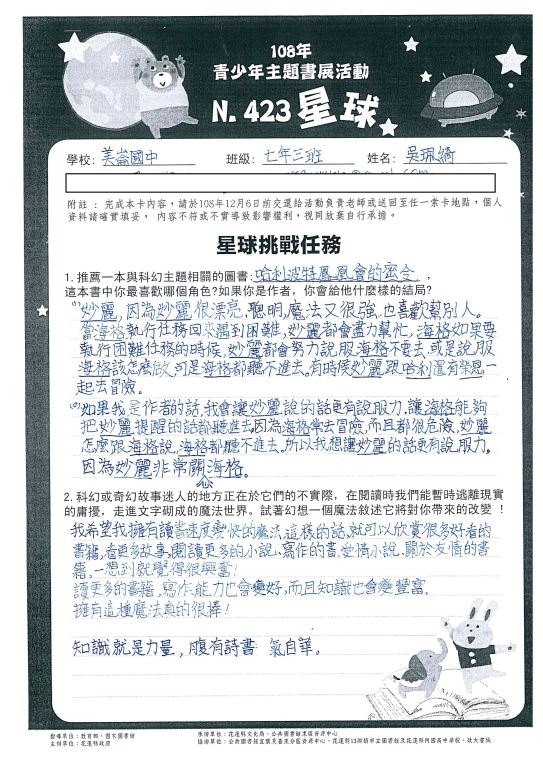 108年
青少年主題書展活動
N. 423 星球
學校: 美崙國中 班級: 七年三班 姓名: 吳珮綺
附註：完成本卡內容，請於108年12月6日前交還給活動負責老師或送回至任一索卡地點，個人
資料請確實填妥， 內容不符或不實導致影響權利，視同放棄自行承擔。
星球挑戰任務
1. 推薦一本與科幻主題相關的圖書: 哈利波特鳳凰會的密令，
這本書中你最喜歡哪個角色?如果你是作者，你會給他什麼樣的結局?
(1)妙麗，因為妙麗很漂亮,聰明,魔法又很強,也喜歡幫別人。
當海格執行任務回來遇到困難,妙麗都會盡力幫忙,海格如果要
執行困難任務的時候,妙麗都會努力說服海格不要去,或是說服
海格該怎麼放,可是海格都聽不進去。有時候妙麗跟哈利還有榮恩一
起去冒險。
(2)如果我是作者的話,我會讓妙麗說的話更有說服力,讓海格能夠
把妙麗提醒的話都聽進去,因為海格常去冒險,而且都很危險,妙麗
怎麼跟海格說,海格都聽不進去,所以我想讓妙麗的話更有說服力。
因為妙麗非常關心海格。
2. 科幻或奇幻故事迷人的地方正在於它們的不實際，在閱讀時我們能暫時逃離現實
的庸擾，走進文字砌成的魔法世界。試著幻想一個魔法敘述它將對你帶來的改變！
我希望我擁有讀書速度變快的魔法,這樣的話,就可以欣賞很多好看的
書籍,看更多故事,閱讀更多的小說、寫作的書、愛情小說、關於友情的書
籍,一想到就覺得很興奮!
讀更多的書籍,寫作能力也會變好,而且知識也會變豐富,
擁有這種魔法真的很棒!
知識就是力量，腹有詩書 氣自華。
指導單位：教育部、國家圖書館
主辦單位：花蓮縣政府
承辦單位：花蓮縣文化局、公共圖書館東區資源中心
協辦單位：公共圖書館宜蘭及臺東分區資源中心、花蓮縣13鄉鎮市立圖書館及花蓮縣內國高中學校、政大書城